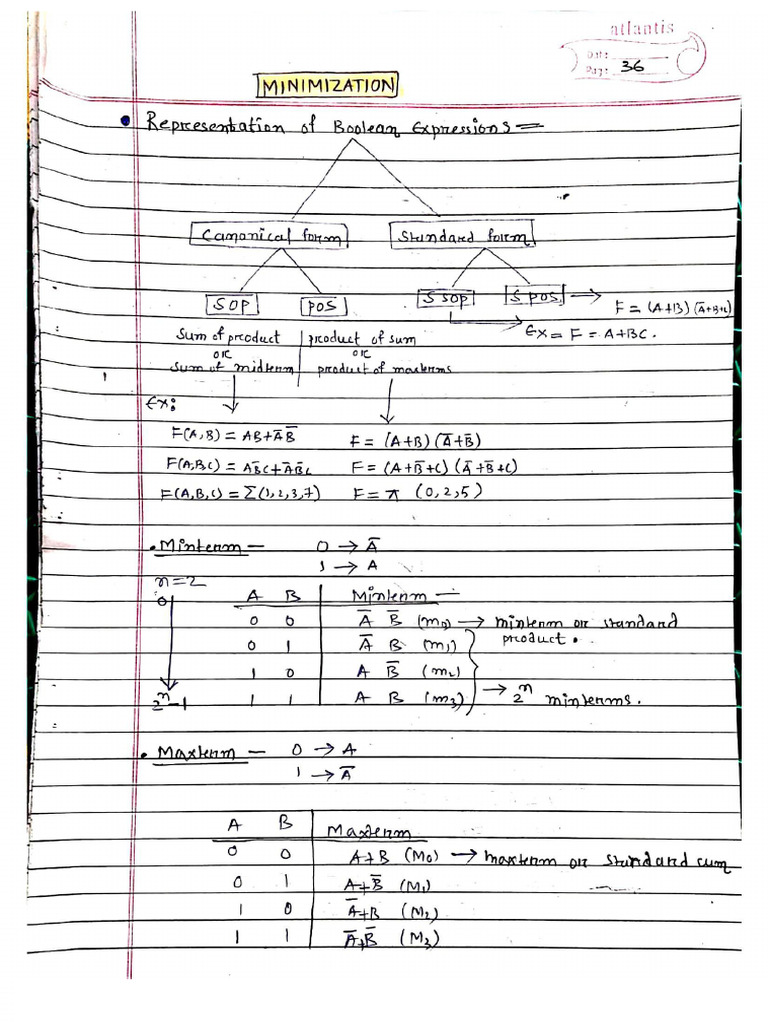 atlantis
Date:
Page: 36
MINIMIZATION
• Representation of Boolean Expressions =
Canonical form Standard form
SOP POS S SOP S POS → F = (A+B) (A̅+B+C)
Sum of product | product of sum → Ex = F = A+BC.
or or
Sum of midterm | product of maxterms
Ex:
F(A,B) = AB+A̅B̅ F = (A+B) (A̅+B̅)
F(A,B,C) = AB̅C+A̅B̅C F = (A+B̅+C) (A̅+B̅+C)
F(A,B,C) = Σ(1,2,3,7) F = π (0,2,5)
• Minterm – 0 → A̅
1 → A
n=2
0 A B Minterm –
0 0 A̅ B̅ (m0) → minterm or standard
product.
0 1 A̅ B (m1)
1 0 A B̅ (m2)
2ⁿ-1 1 1 A B (m3) → 2ⁿ minterms.
• Maxterm – 0 → A
1 → A̅
A B Maxterm
0 0 A+B (M0) → maxterm or standard sum
0 1 A+B̅ (M1)
1 0 A̅+B (M2)
1 1 A̅+B̅ (M3)